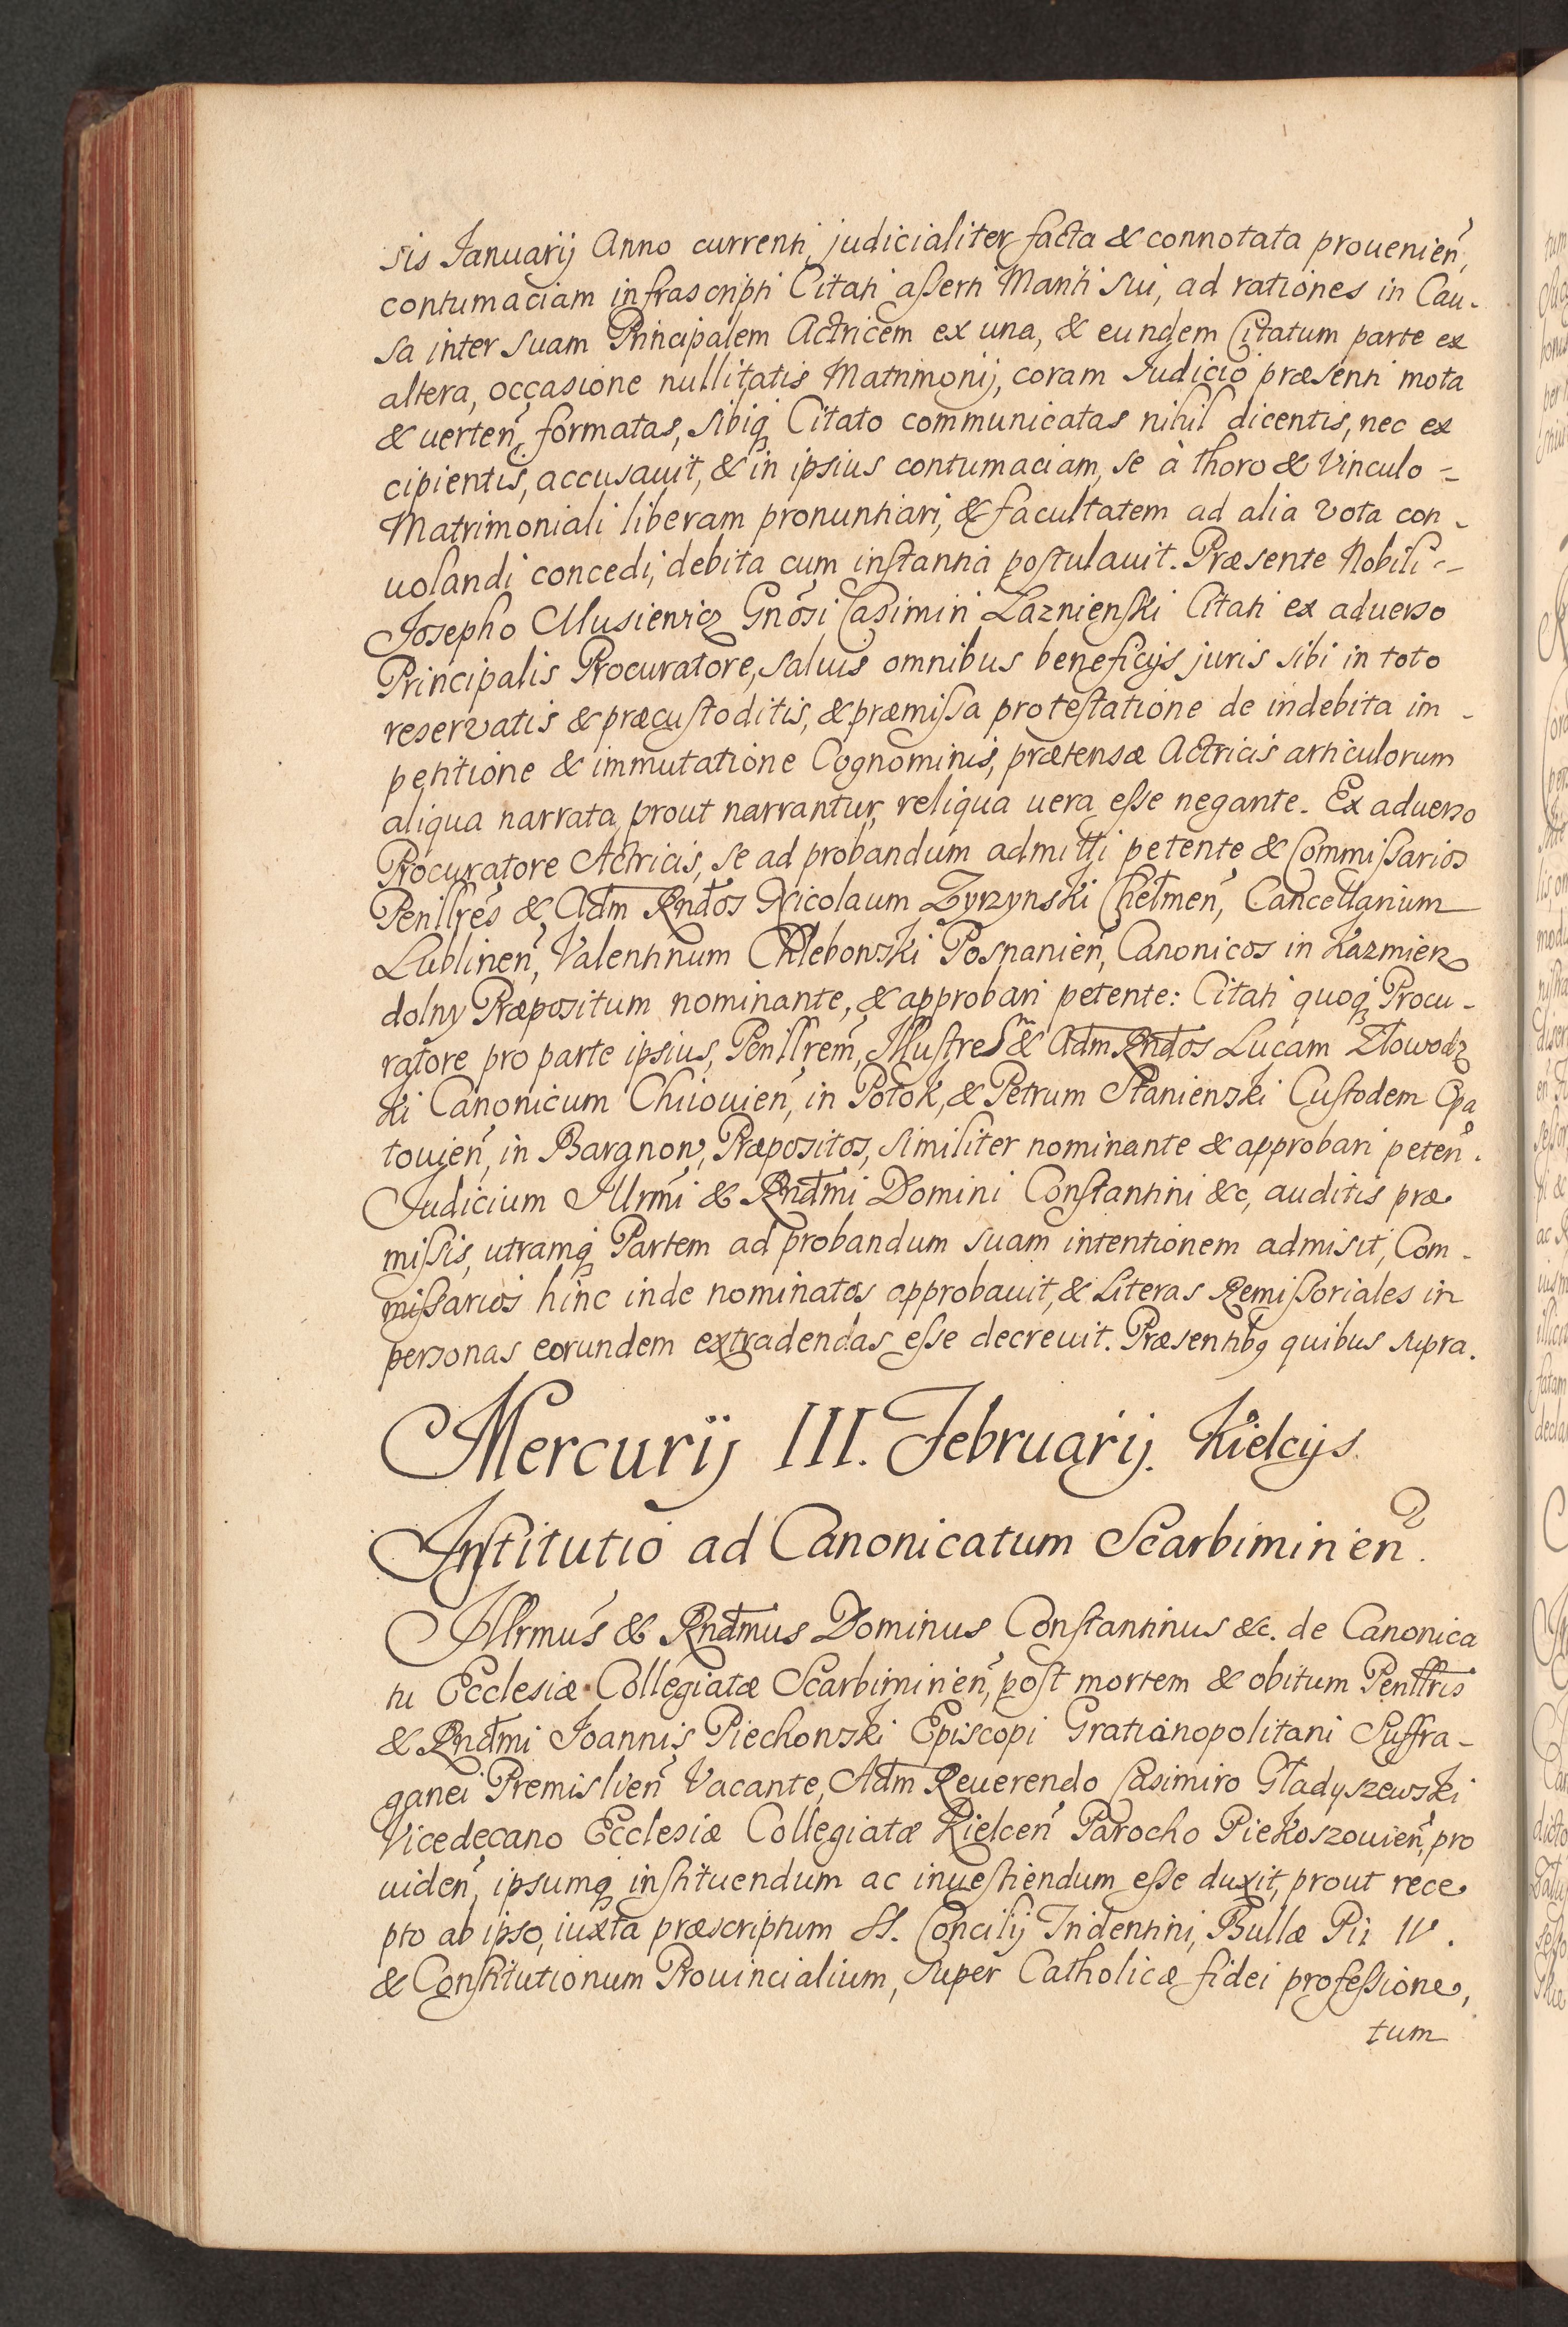 sis Januarij Anno currenti, judicialiter facta & connotata prouenień,
contumaciam infrascripti Citati aſserti Mariti sui, ad rationes in Cau-
sa inter suam Principalem Actricem ex una, & eundem Citatum parte ex
altera, occasione nullitatis Matrimonij, coram Iudicio præsenti mota
& uerteń, formatas, sibiq; Citato communicatas nihil dicentis, nec ex
cipientis, accusauit, & in ipsius contumaciam, se à thoro & Vinculo =
Matrimoniali liberam pronuntiari, & facultatem ad alia vota con-
uolandi concedi, debita cum inſtantia poſtulauit. Præsente Nobili =
Josepho Musiewicz Gnosi Casimiri Łaznienſki Citati ex aduerso
Principalis Procuratore, saluis omnibus beneficijs juris sibi in toto
reservatis & præcuſtoditis, & præmiſsa proteſtatione de indebita im-
petitione & immutatione Cognominis, prætensæ Actricis articulorum
aliqua narrata, prout narrantur, reliqua uera eſse negante. Ex aduerso
Procuratore Actricis, se ad probandum admitti petente & Commiſsarios
Penillres & Adm Rndos Nicolaum Zyrzynski Chełmeń, Cancellarium
Lublineń, Valentinum Chlebowski Posnanień, Canonicos in Kazmierz
dolny Præpositum nominante, & approbari petente: Citati quoq; Procu-
ratore pro parte ipsius, Penillrem, Illuſtres & Adm Rndos Lucam Złowodz
ki Canonicum Chiiouień, in Potok, & Petrum Stanienski Cuſtodem Opa
touień, in Bargnow, Præpositos, similiter nominante & approbari peteń.
Judicium Illrmi & Rndmi Domini Conſtantini &c, auditis præ
miſsis, utramq; Partem ad probandum suam intentionem admisit, Com-
miſsarios hinc inde nominatos approbauit, & Literas Remiſsoriales in
personas eorundem extradendas eſse decreuit. Præsentibq quibus supra.
Mercurij III. Februarij. Kielcijs.
Inſtitutio ad Canonicatum Scarbimineń.
Illrmus & Rndmus Dominus Conſtantinus &c. de Canonica
tu Ecclesiæ Collegiatæ Scarbimineń, poſt mortem & obitum Penllris
& Rndmi Joannis Piechowski Episcopi Gratianopolitani Suffra-
ganei Premislień Vacante, Adm Reuerendo Casimiro Gładyszewski
Vicedecano Ecclesiæ Collegiatæ Kielceń Parocho Piekoszouień, pro
uideń, ipsumq; inſtituendum ac inueſtiendum eſse duxit, prout rece
pto ab ipso, iuxta præscriptum SS. Concilij Tridentini, Bullæ Pii IV.
& Conſtitutionum Prouincialium, super Catholicæ fidei profeſsione,
tum